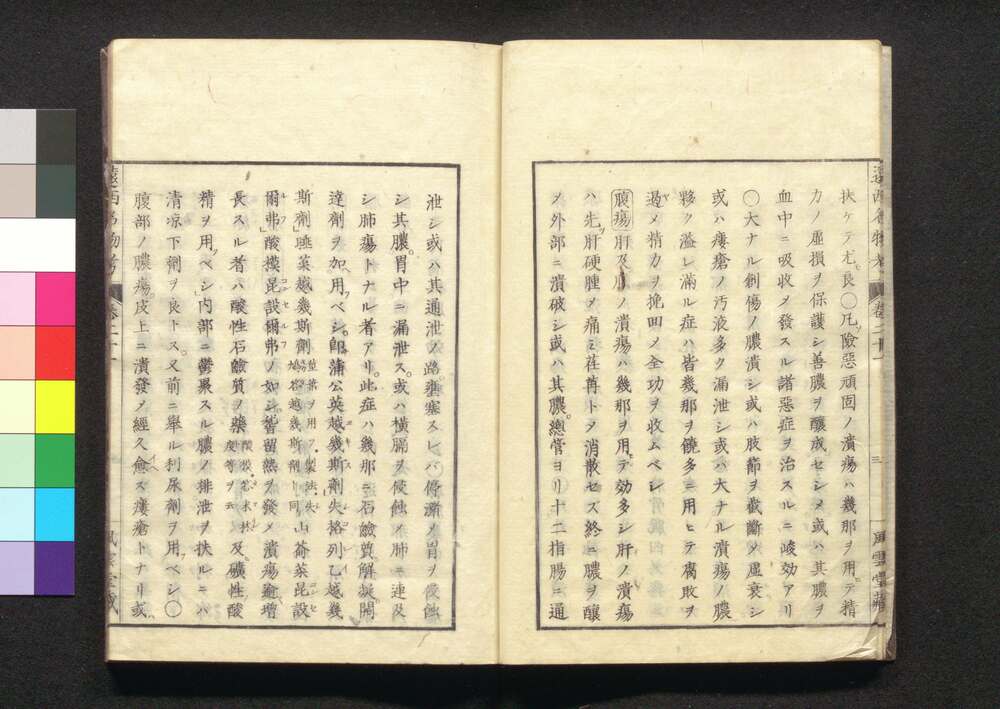 扶ケテ尤良〇凡險惡頑固ノ潰瘍ハ幾那ヲ用テ精
力ノ虛損ヲ保護シ善膿ヲ釀成セシメ或ハ其膿ヲ
血中ニ吸收メ發スル諸惡症ヲ治スルニ峻効アリ
〇大ナル創傷ノ膿潰シ或ハ肢節ヲ截斷メ虛衰シ
或ハ瘻瘡ノ汚液多ク漏泄シ或ハ大ナル潰瘍ノ膿
夥ク溢レ滿ル症ハ皆幾那ヲ饒多ニ用ヒテ腐敗ヲ
遏メ精力ヲ挽回メ全功ヲ收ムベシ
腹瘍肝及ノ潰瘍ハ幾那ヲ用テ効多シ肝ノ潰瘍
ハ先肝硬腫メ痛ミ荏苒トメ消散セズ終ニ膿ヲ釀
メ外部ニ潰破シ或ハ其膿總管ヨリ十二指腸ニ通
遠西名物考
卷二十一
三
風雲堂藏
泄シ或ハ其通泄ノ路壅塞スレバ停瀦メ胃ヲ侵蝕
シ其膿胃中ニ漏泄ス或ハ橫膈ヲ侵蝕メ肺ニ連及
シ肺瘍トナル者アリ此症ハ幾那ニ石鹼質解凝開
達劑ヲ加用ベシ卽蒲公英越幾斯劑失格列乙越幾
斯劑睡菜越幾斯劑山崙菜昆設
爾弗酸模昆設爾弗ノ如シ皆留熱ヲ發メ潰瘍逾增
長スル者ハ酸性石鹼質ノ藥及礦性酸
精ヲ用ベシ內部ニ鬱聚スル膿ノ排泄ヲ扶ルニハ
清凉下劑ヲ良トス又前ニ擧ル利尿劑ヲ用ベシ〇
腹部ノ膿瘍皮上ニ潰發メ經久愈ズ瘻瘡トナリ或
遠西名物考
卷二十一
風雲堂藏